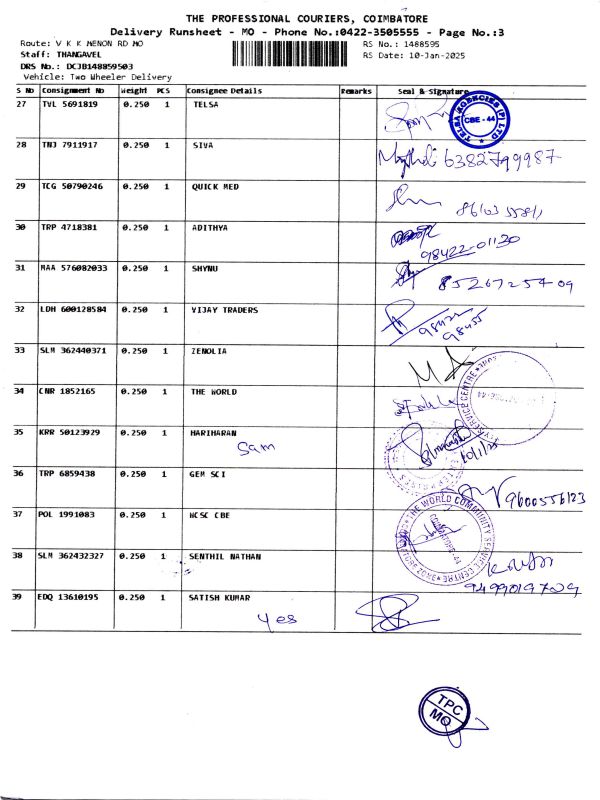 THE PROFESSIONAL COURIERS, COIMBATORE
Delivery Runsheet - MO - Phone No.:0422-3505555 - Page No.:3
Route: V K K MENON RD MO RS No.: 1488595
Staff: THANGAVEL RS Date: 10-Jan-2025
DRS No.: DCJB148859503
Vehicle: Two Wheeler Delivery
S No Consignment No Weight PCS Consignee Details Remarks Seal & Signature
27 TVL 5691819 0.250 1 TELSA
TELSA AGENCIES (P) LTD CBE - 44
28 TNJ 7911917 0.250 1 SIVA
6382799987
29 TCG 50790246 0.250 1 QUICK MED
30 TRP 4718381 0.250 1 ADITHYA
98422-01130
31 MAA 576082033 0.250 1 SHYNU
8526725409
32 LDH 600128584 0.250 1 VIJAY TRADERS
33 SLM 362440371 0.250 1 ZENOLIA
34 CNR 1852165 0.250 1 THE WORLD
35 KRR 50123929 0.250 1 HARIHARAN
Sam
36 TRP 6859438 0.250 1 GEM SCI
9600556123
37 POL 1991083 0.250 1 WCSC CBE
THE WORLD COMMUNITY SERVICE CENTRE
38 SLM 362432327 0.250 1 SENTHIL NATHAN
9499019729
39 EDQ 13610195 0.250 1 SATISH KUMAR
Yes
TPC
MO